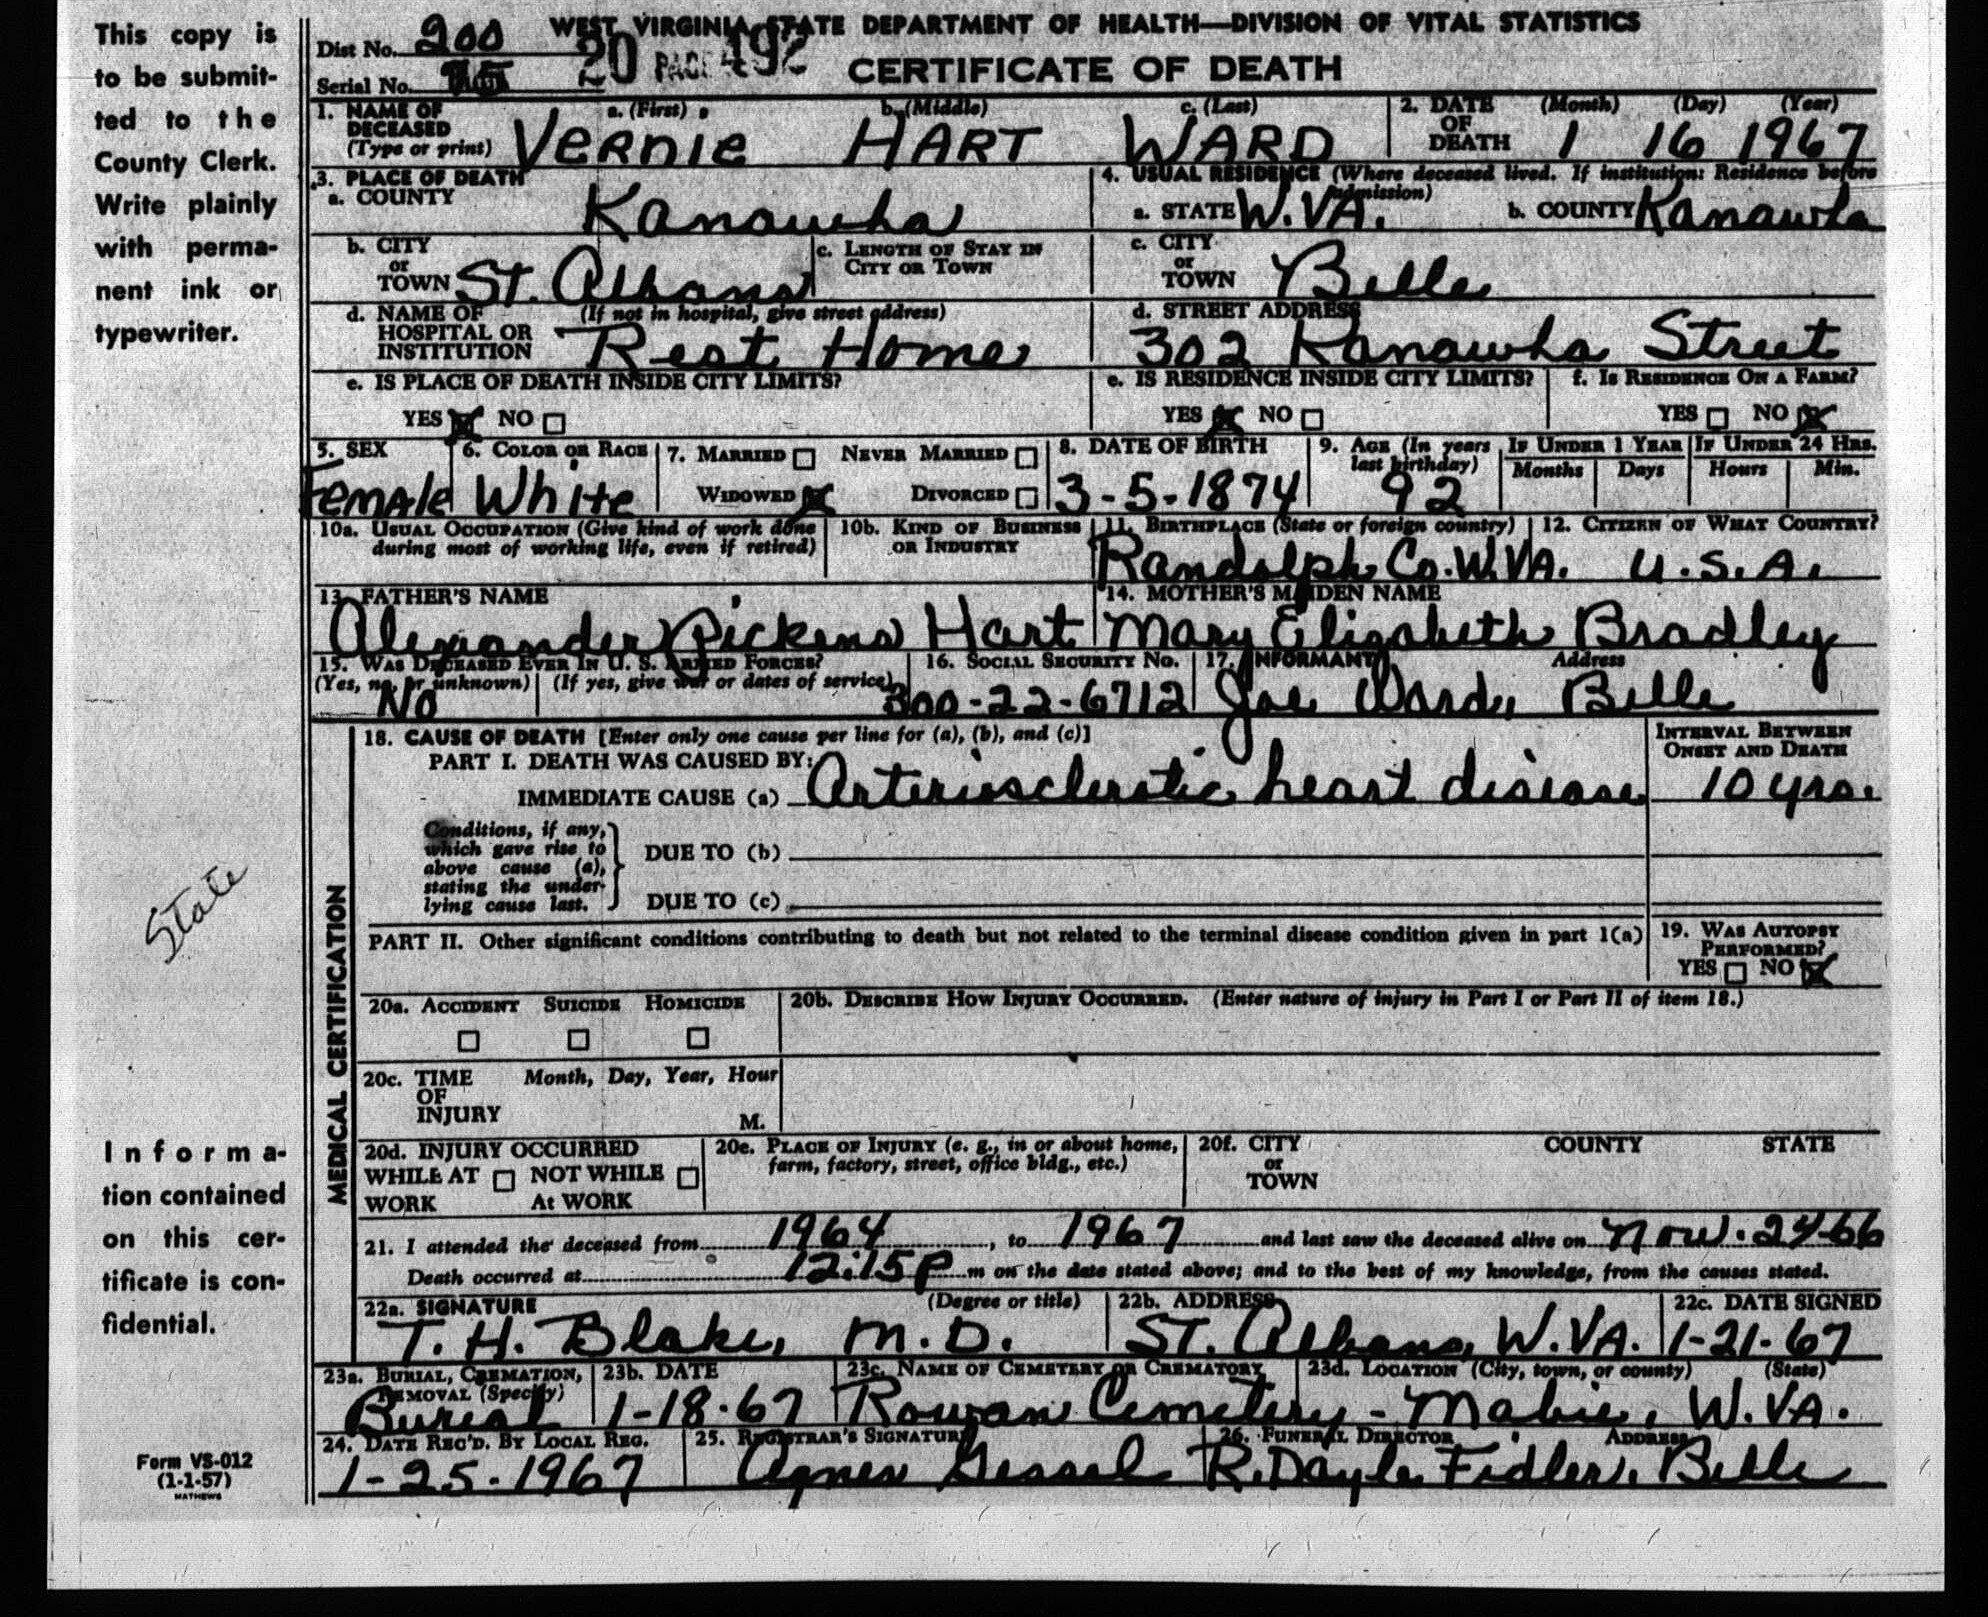 This copy is
to be submit-
ted to the
County Clerk.
Write plainly
with perma-
nent ink or
typewriter.
State
Informa-
tion contained
on this cer-
tificate is con-
fidential.
Form VS-012
(1-1-57)
MATHEWS
WEST VIRGINIA STATE DEPARTMENT OF HEALTH—DIVISION OF VITAL STATISTICS
Dist No. 200
20 PAGE 492
CERTIFICATE OF DEATH
Serial No.
1. NAME OF DECEASED (Type or print) a. (First) VERNIE b. (Middle) HART c. (Last) WARD
2. DATE OF DEATH (Month) (Day) (Year) 1 16 1967
3. PLACE OF DEATH
a. COUNTY Kanawha
4. USUAL RESIDENCE (Where deceased lived. If institution: Residence before admission)
a. STATE W.VA. b. COUNTY Kanawha
b. CITY or TOWN St. Albans
c. LENGTH OF STAY IN CITY OR TOWN
c. CITY or TOWN Belle
d. NAME OF HOSPITAL OR INSTITUTION (If not in hospital, give street address) Rest Home
d. STREET ADDRESS 302 Kanawha Street
e. IS PLACE OF DEATH INSIDE CITY LIMITS?
YES NO
e. IS RESIDENCE INSIDE CITY LIMITS?
YES NO
f. IS RESIDENCE ON A FARM?
YES NO
5. SEX Female
6. COLOR OR RACE White
7. MARRIED NEVER MARRIED
WIDOWED DIVORCED
8. DATE OF BIRTH 3-5-1874
9. AGE (In years last birthday) 92
IF UNDER 1 YEAR Months Days
IF UNDER 24 HRS. Hours Min.
10a. USUAL OCCUPATION (Give kind of work done during most of working life, even if retired)
10b. KIND OF BUSINESS OR INDUSTRY
11. BIRTHPLACE (State or foreign country) Randolph Co. W.VA.
12. CITIZEN OF WHAT COUNTRY? U.S.A.
13. FATHER'S NAME Alexander Pickens Hart
14. MOTHER'S MAIDEN NAME Mary Elizabeth Bradley
15. WAS DECEASED EVER IN U. S. ARMED FORCES?
(Yes, no, or unknown) No (If yes, give war or dates of service)
16. SOCIAL SECURITY NO. 300-22-6712
17. INFORMANT Address Joe Ward, Belle
18. CAUSE OF DEATH [Enter only one cause per line for (a), (b), and (c)]
PART I. DEATH WAS CAUSED BY:
IMMEDIATE CAUSE (a) Arteriosclerotic heart disease
INTERVAL BETWEEN ONSET AND DEATH
10 yrs.
Conditions, if any, which gave rise to above cause (a), stating the under-lying cause last.
DUE TO (b)
DUE TO (c)
PART II. Other significant conditions contributing to death but not related to the terminal disease condition given in part 1(a)
19. WAS AUTOPSY PERFORMED?
YES NO
MEDICAL CERTIFICATION
20a. ACCIDENT SUICIDE HOMICIDE
20b. DESCRIBE HOW INJURY OCCURRED. (Enter nature of injury in Part I or Part II of item 18.)
20c. TIME OF INJURY Month, Day, Year, Hour
M.
20d. INJURY OCCURRED
WHILE AT WORK NOT WHILE At WORK
20e. PLACE OF INJURY (e. g., in or about home, farm, factory, street, office bldg., etc.)
20f. CITY or TOWN COUNTY STATE
21. I attended the deceased from 1964, to 1967 and last saw the deceased alive on Nov. 24-66
Death occurred at 12:15 P m on the date stated above; and to the best of my knowledge, from the causes stated.
22a. SIGNATURE (Degree or title) T. H. Blake, M.D.
22b. ADDRESS ST. Albans, W.VA.
22c. DATE SIGNED 1-21-67
23a. BURIAL, CREMATION, REMOVAL (Specify) Burial
23b. DATE 1-18-67
23c. NAME OF CEMETERY OR CREMATORY Rowan Cemetery -
23d. LOCATION (City, town, or county) (State) Mabie, W.VA.
24. DATE REC'D. BY LOCAL REG. 1-25-1967
25. REGISTRAR'S SIGNATURE Agnes Gessel
26. FUNERAL DIRECTOR ADDRESS R. Dayle Fidler, Belle